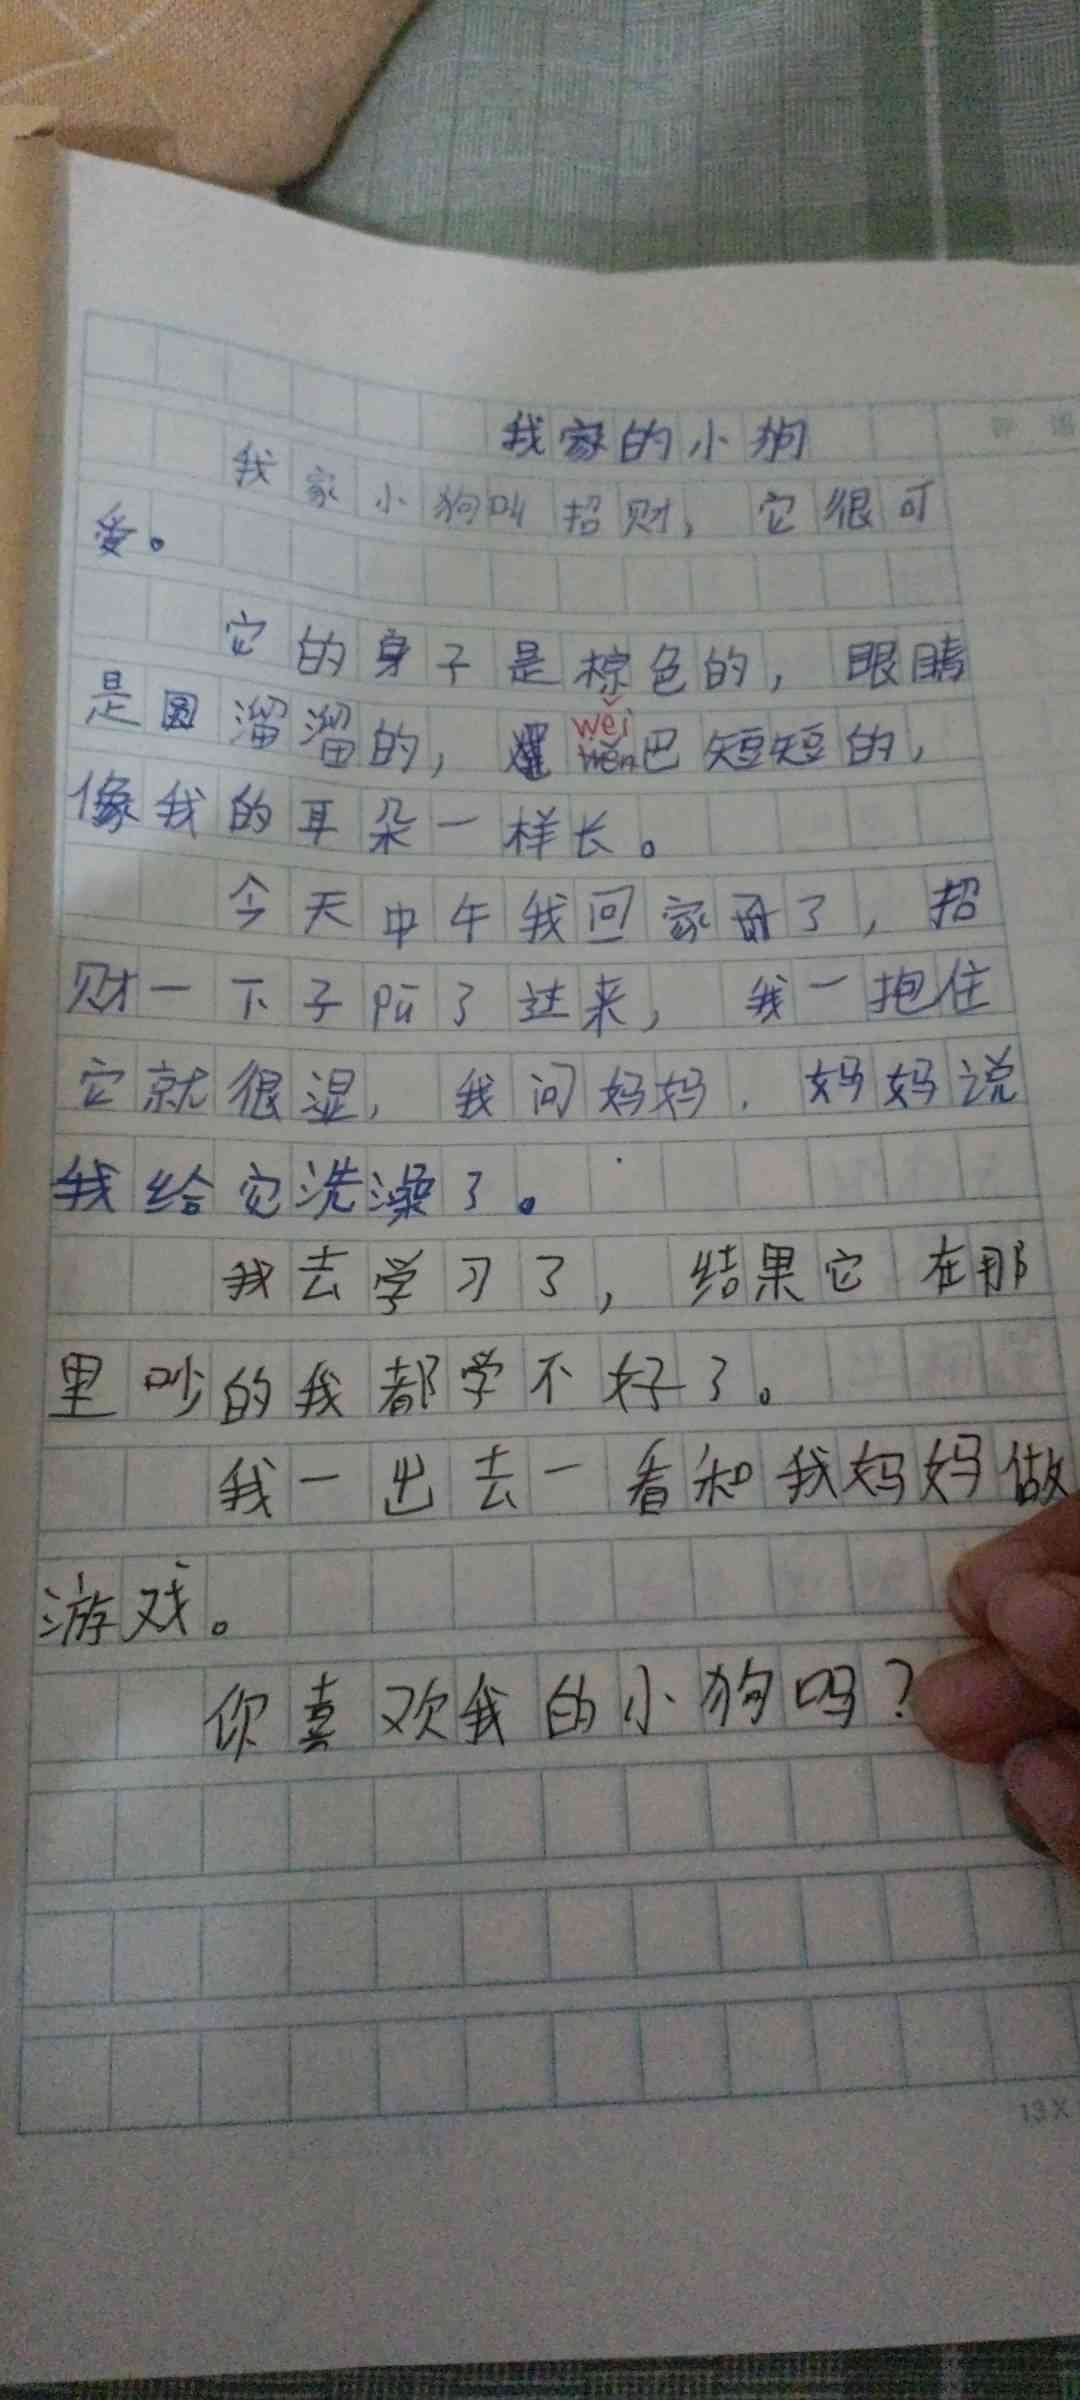 我家的小狗
我家小狗叫招财，它很可
爱。
它的身子是棕色的，眼睛
是圆溜溜的，wěi巴短短的，
像我的耳朵一样长。
今天中午我回家了，招
财一下子pū了过来，我一抱住
它就很湿，我问妈妈，妈妈说
我给它洗澡了。
我去学习了，结果它在那
里吵的我都学不好了。
我一出去一看和我妈妈做
游戏。
你喜欢我的小狗吗？
13X